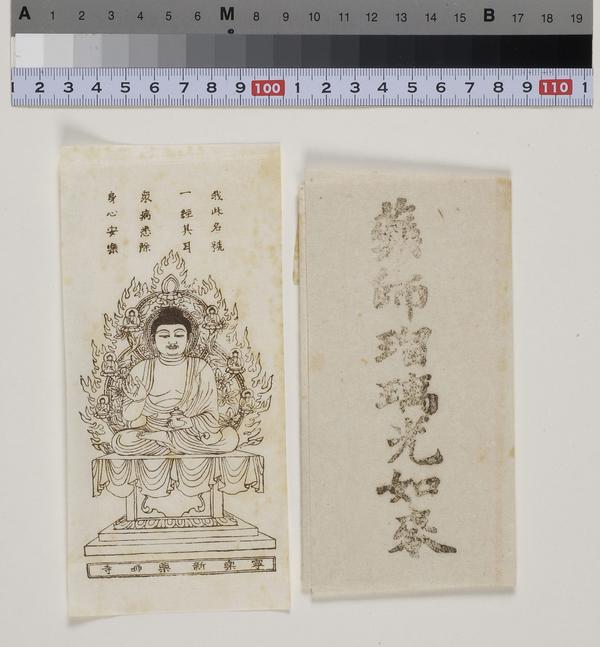 A 1 2 3 4 5 6 M 8 9 10 11 12 13 14 15 B 17 18 19
1 2 3 4 5 6 7 8 9 100 1 2 3 4 5 6 7 8 9 110 1
我此名號
一經其耳
衆病悉除
身心安樂
寧樂新藥師寺
藥師瑠璃光如來